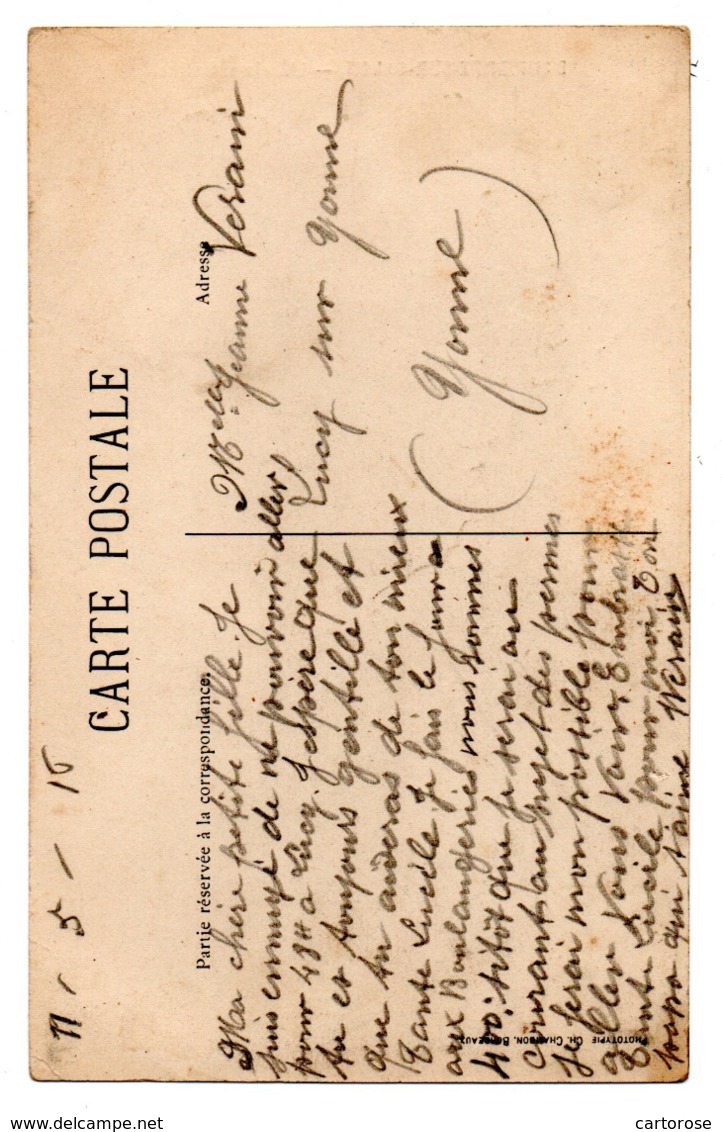 CARTE POSTALE
11 - 5 - 15
Partie réservée à la correspondance.
Adresse
Ma chère petite fille. Je
suis ennuyé de ne pouvoir aller
pour 48H a Lucy J'espère que
tu es toujours gentille et
que tu aideras de ton mieux
Tante Lucile Je fais le
aux Boulangeries nous sommes
400. sitôt que je serai au
courant au sujet des permes
Je ferai mon possible pour
aller vous voir Embrasse
Tante Lucile pour moi. Ton
papa qui t'aime Verain
Melle Jeanne Verain
Lucy sur Yonne
(Yonne)
PHOTOTYPIE CH. CHAMBON, BORDEAUX
cartorose